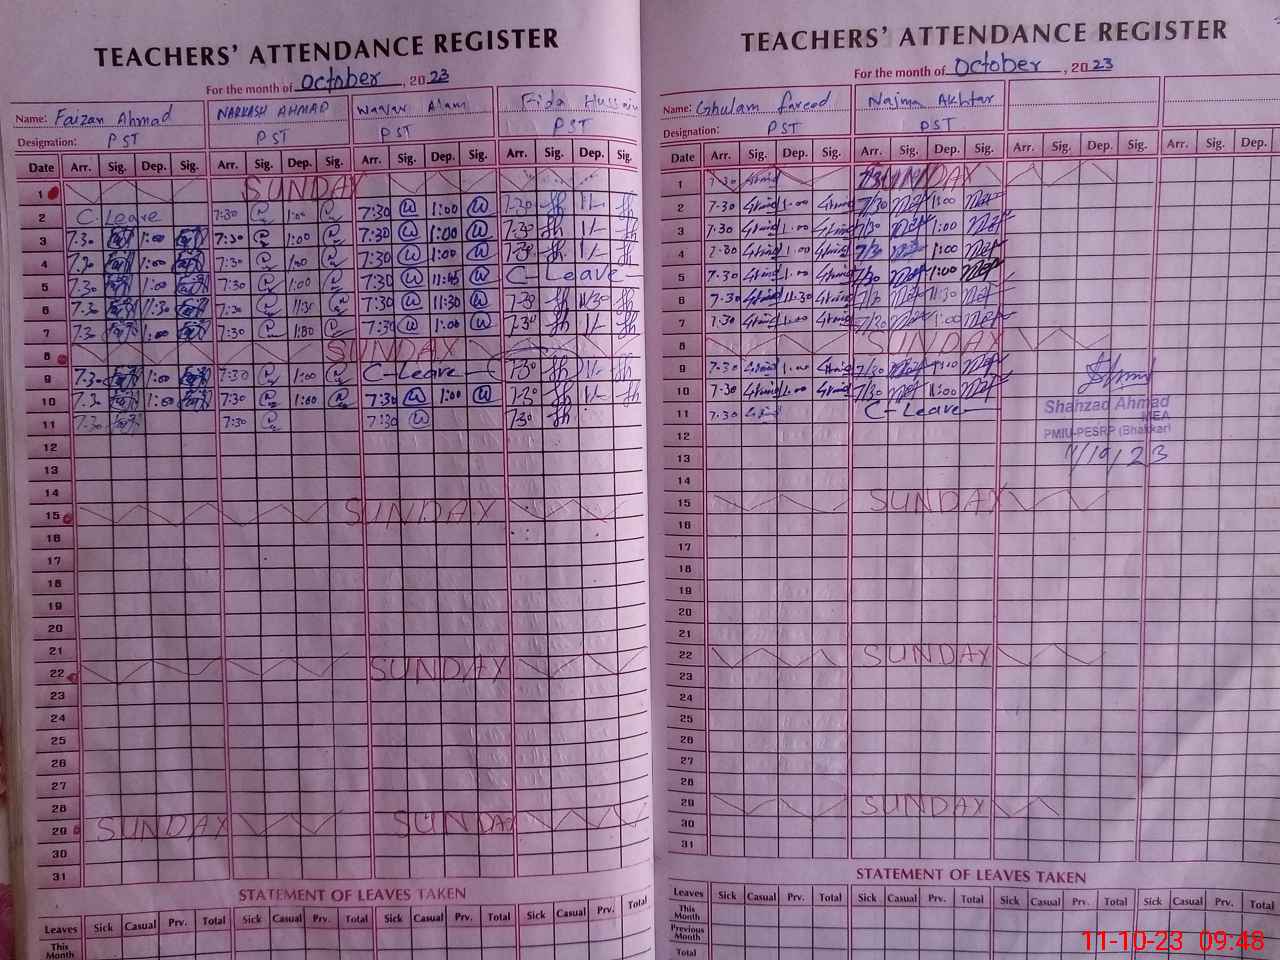 TEACHERS' ATTENDANCE REGISTER
For the month of October, 2023
Name: Faizan Ahmad NARKASH AHMAD Waqar Alam Fida Hussain
Designation: PST PST PST PST
Date Arr. Sig. Dep. Sig. Arr. Sig. Dep. Sig. Arr. Sig. Dep. Sig. Arr. Sig. Dep. Sig.
1 SUNDAY
2 C. Leave 7:30 1:00 7:30 1:00 7.30 1/-
3 7.30 1:00 7:30 1:00 7:30 1:00 7.30 1/-
4 7.30 1:00 7:30 1:00 7:30 1:00 7.30 1/-
5 7.30 1:00 7:30 1:00 7:30 11:45 C-Leave-
6 7.30 11:30 7:30 11:30 7:30 11:30 7.30 11/30
7 7.30 1:00 7:30 1:00 7:30 1:00 7.30 1/-
8 SUNDAY
9 7.30 1:00 7:30 1:00 C-Leave- 7.30 1/-
10 7.30 1:00 7:30 1:00 7:30 1:00 7.30 1/-
11 7.30 7:30 7:30 7.30
12
13
14
15 SUNDAY
16
17
18
19
20
21
22 SUNDAY
23
24
25
26
27
28
29 SUNDAY SUNDAY
30
31
STATEMENT OF LEAVES TAKEN
Leaves Sick Casual Prv. Total Sick Casual Prv. Total Sick Casual Prv. Total Sick Casual Prv. Total
This Month
TEACHERS' ATTENDANCE REGISTER
For the month of October, 2023
Name: Ghulam fareed Najma Akhtar
Designation: PST PST
Date Arr. Sig. Dep. Sig. Arr. Sig. Dep. Sig. Arr. Sig. Dep. Sig. Arr. Sig. Dep.
1 7.30 SUNDAY
2 7.30 1.00 7/30 1:00
3 7.30 1.00 7/30 1:00
4 7.30 1.00 7/30 1:00
5 7.30 1.00 7/30 1:00
6 7.30 11.30 7/30 11:30
7 7.30 1.00 7/30 1:00
8 SUNDAY
9 7.30 1.00 7/30 1:00
10 7.30 1.00 7/30 1:00
11 7.30 C-Leave-
Shahzad Ahmad
MEA
PMIU-PESRP (Bhakkar)
11/10/23
12
13
14
15 SUNDAY
16
17
18
19
20
21
22 SUNDAY
23
24
25
26
27
28
29 SUNDAY
30
31
STATEMENT OF LEAVES TAKEN
Leaves Sick Casual Prv. Total Sick Casual Prv. Total Sick Casual Prv. Total Sick Casual Prv. Total
This Month
Previous Month
Total
11-10-23 09:48